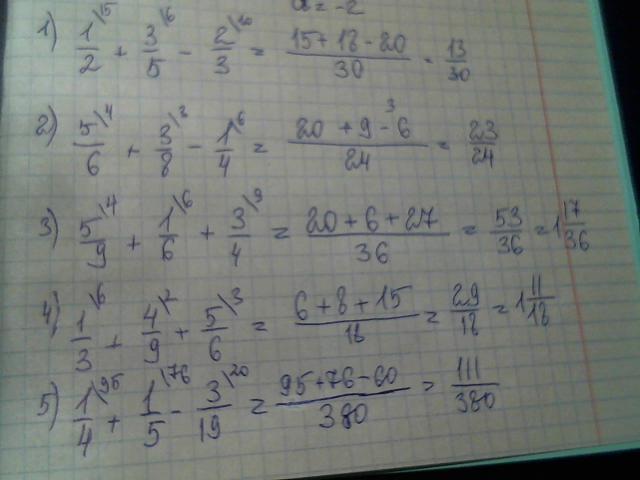 a = -2
1) 1/2 \15 + 3/5 \6 - 2/3 \10 = (15+18-20)/30 = 13/30
2) 5/6 \4 + 3/8 \3 - 1/4 \6 = (20 + 9 - 6)/24 = 23/24
3) 5/9 \4 + 1/6 \6 + 3/4 \9 = (20+6+27)/36 = 53/36 = 1 17/36
4) 1/3 \6 + 4/9 \2 + 5/6 \3 = (6+8+15)/18 = 29/18 = 1 11/18
5) 1/4 \95 + 1/5 \76 - 3/19 \20 = (95+76-60)/380 = 111/380